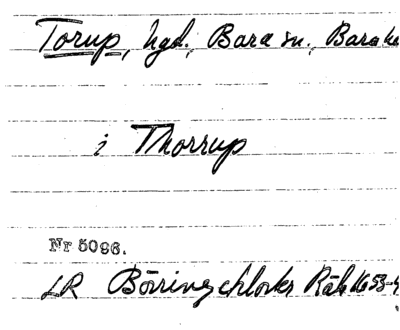 Torup, hgd., Bara sn., Bara h
i Thorrup
Nr 5096.
LR Börringe klosters Räk 1653-